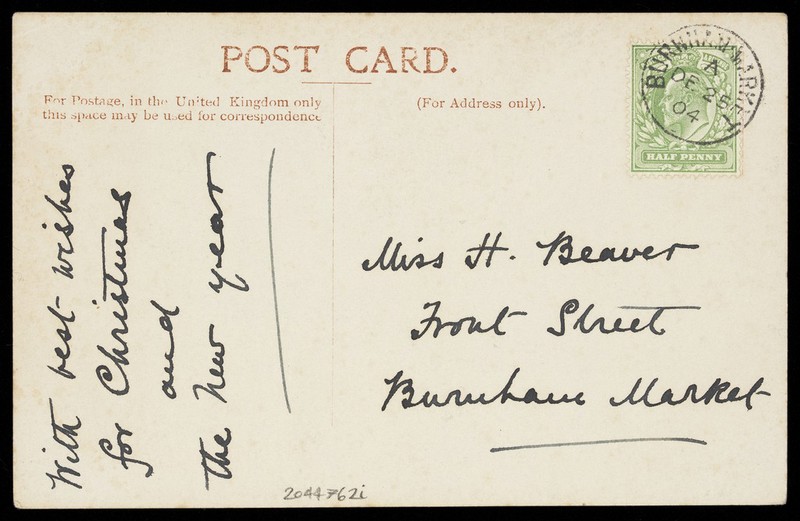 POST CARD.
For Postage, in the United Kingdom only
this space may be used for correspondence
(For Address only).
BURNHAM MARKET
A
DE 25
04
HALF PENNY
With best wishes
for Christmas
and
the New year
Miss H. Beaver
Front Street
Burnham Market
2044762i